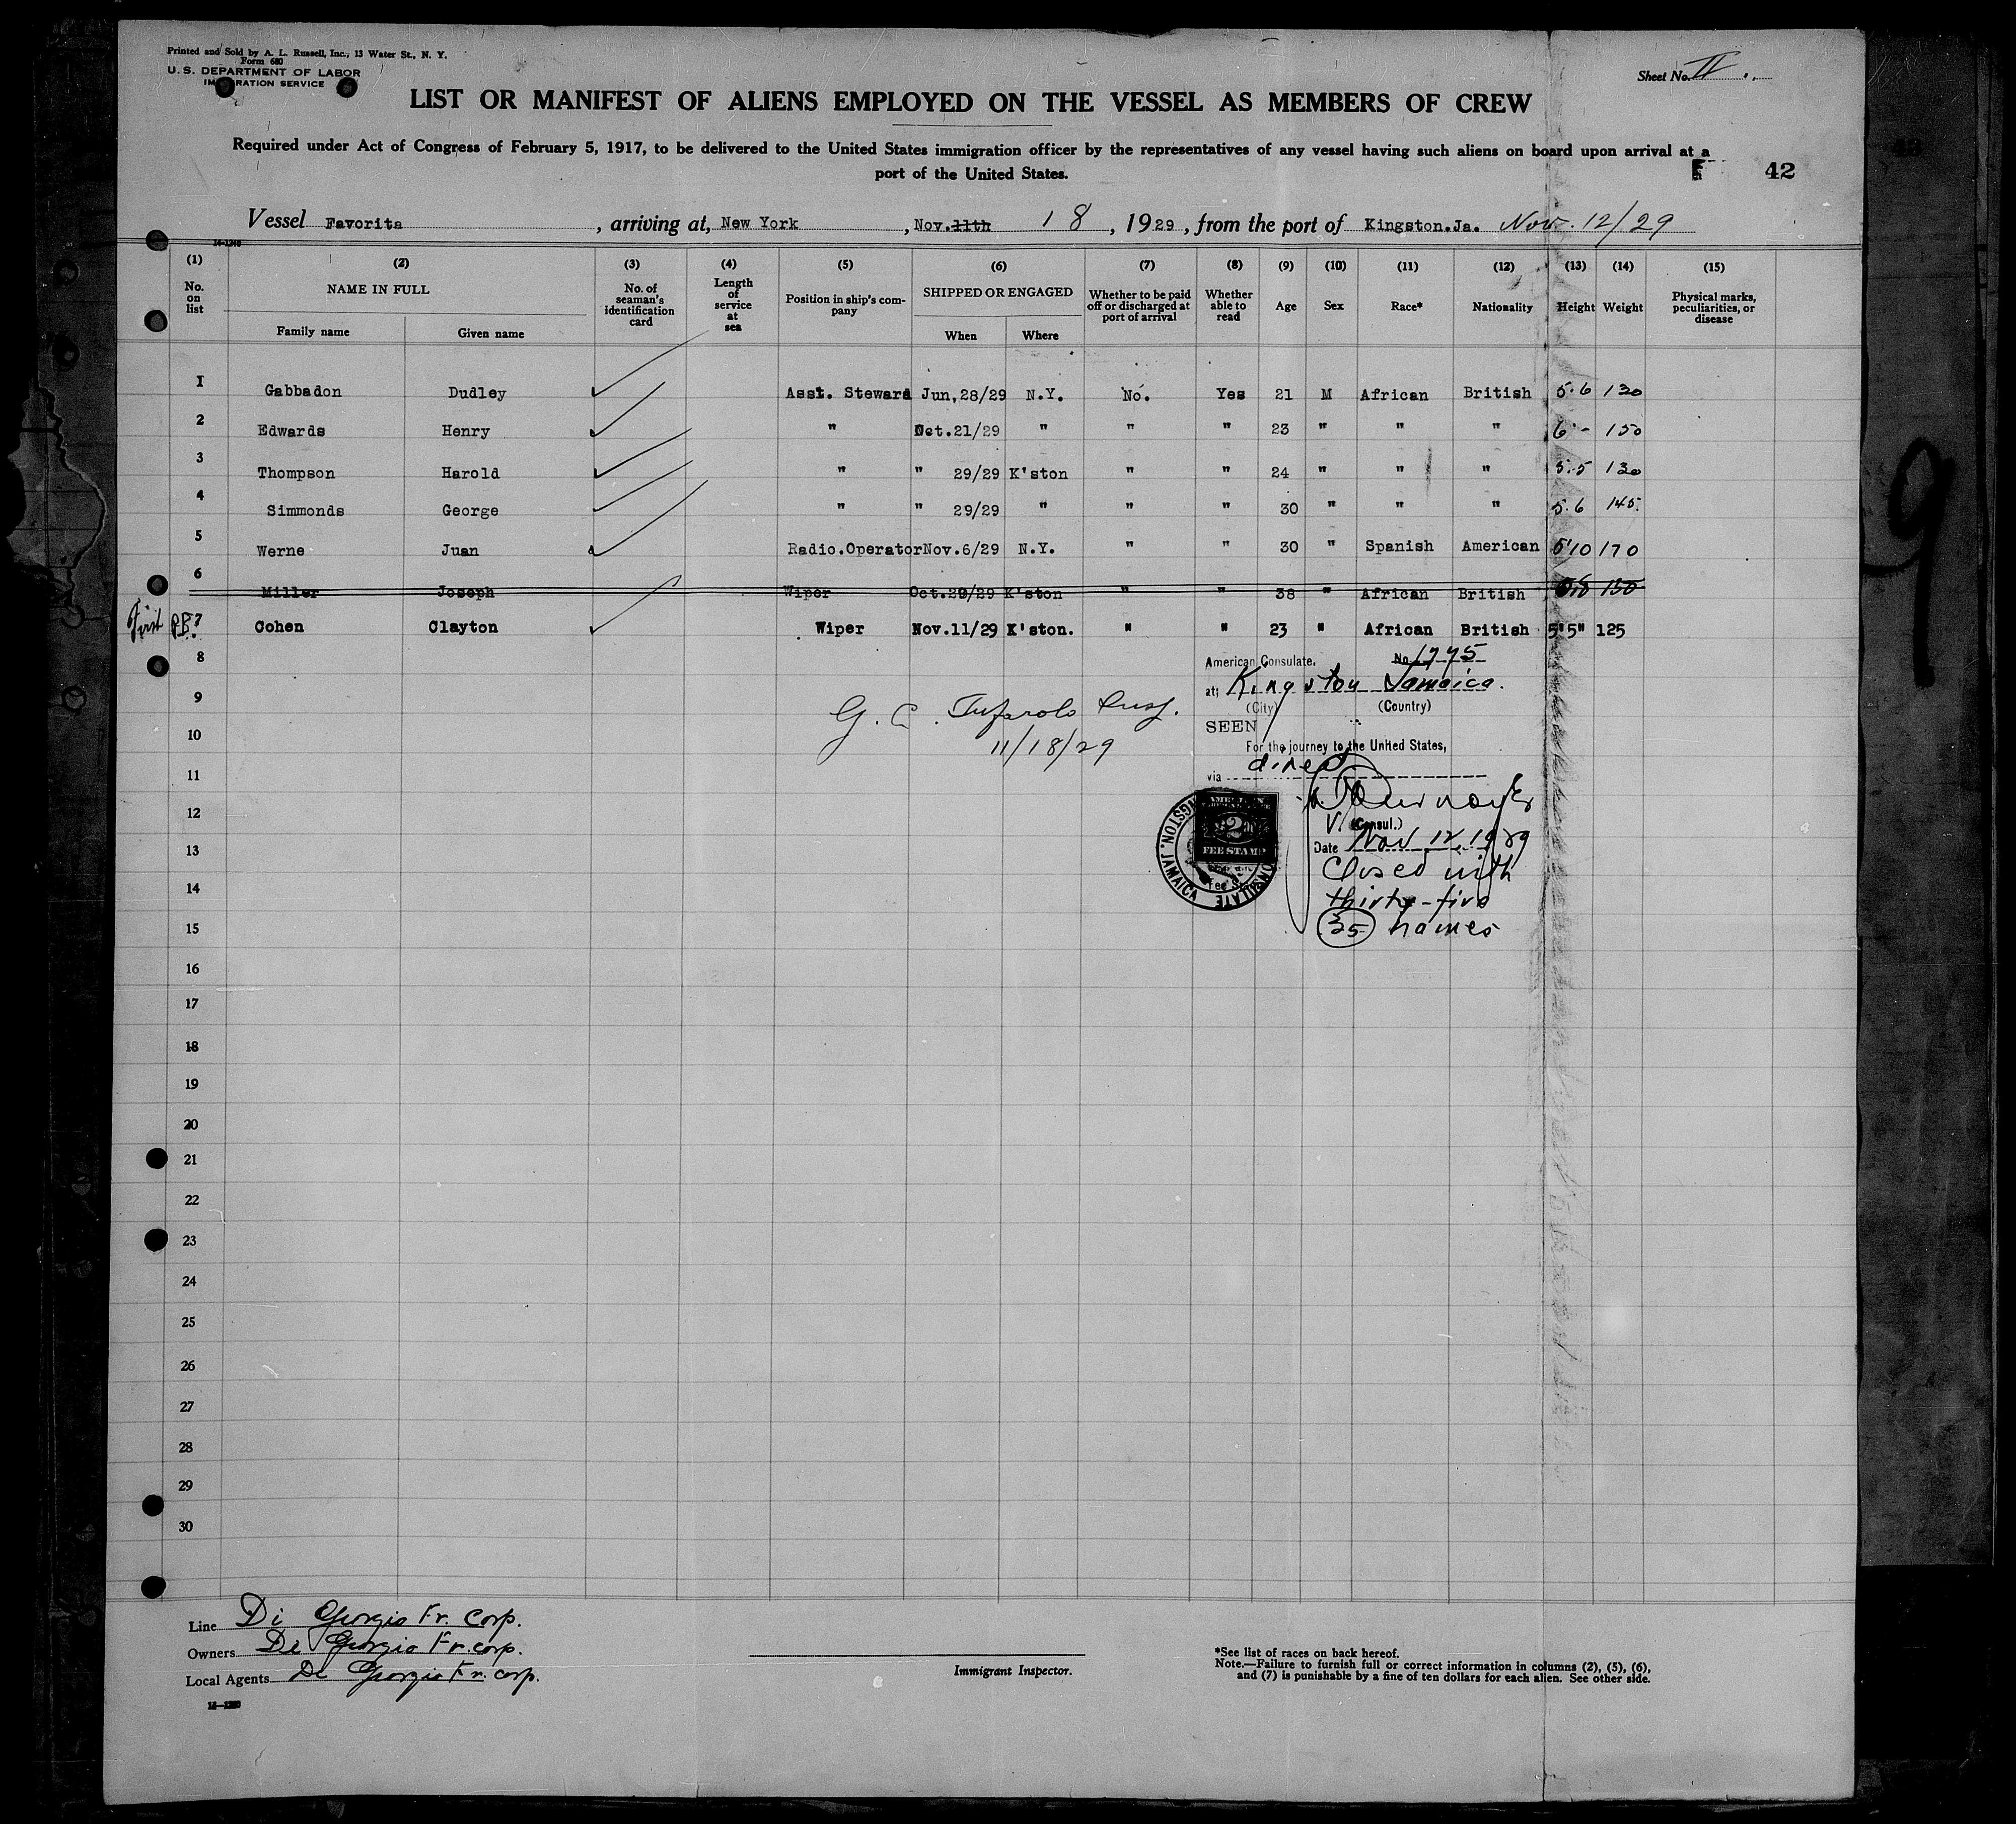 Printed and Sold by A. L. Russell, Inc., 13 Water St., N. Y.
Form 680
U. S. DEPARTMENT OF LABOR
IMMIGRATION SERVICE
Sheet No. II
LIST OR MANIFEST OF ALIENS EMPLOYED ON THE VESSEL AS MEMBERS OF CREW
Required under Act of Congress of February 5, 1917, to be delivered to the United States immigration officer by the representatives of any vessel having such aliens on board upon arrival at a
port of the United States.
F 42
Vessel Favorita, arriving at, New York, Nov. 11th 18, 1929, from the port of Kingston.Ja. Nov. 12/29
14-1240
(1) (2) (3) (4) (5) (6) (7) (8) (9) (10) (11) (12) (13) (14) (15)
No. on list
NAME IN FULL
Family name
Given name
No. of seaman's identification card
Length of service at sea
Position in ship's company
SHIPPED OR ENGAGED
When
Where
Whether to be paid off or discharged at port of arrival
Whether able to read
Age
Sex
Race*
Nationality
Height
Weight
Physical marks, peculiarities, or disease
1 Gabbadon Dudley Asst. Steward Jun,28/29 N.Y. No. Yes 21 M African British 5.6 130
2 Edwards Henry " Oct.21/29 " " " 23 " " " 6 - 150
3 Thompson Harold " " 29/29 K'ston " " 24 " " " 5.5 130
4 Simmonds George " " 29/29 " " " 30 " " " 5.6 145.
5 Werne Juan Radio.Operator Nov.6/29 N.Y. " " 30 " Spanish American 5'10 170
6 Miller Joseph Wiper Oct.29/29 K'ston " " 38 " African British 5.8 150
First P.E. 7 Cohen Clayton Wiper Nov.11/29 K'ston. " " 23 " African British 5'5" 125
8
9
10
11
12
13
14
15
16
17
18
19
20
21
22
23
24
25
26
27
28
29
30
G. C. Insp.
11/18/29
American Consulate, No. 1775
at; Kingston Jamaica.
(City) (Country)
SEEN
For the journey to the United States,
via direct
V. (Consul.)
Date Nov 12, 1929
Closed with
thirty-five
35 names
AMERICAN
2
FEE STAMP
KINGSTON, JAMAICA
CONSULATE
9
Line Di Giorgio Fr. Corp.
Owners Di Giorgio Fr. corp.
Local Agents Di Giorgio Fr. corp.
Immigrant Inspector.
*See list of races on back hereof.
Note.—Failure to furnish full or correct information in columns (2), (5), (6),
and (7) is punishable by a fine of ten dollars for each alien. See other side.